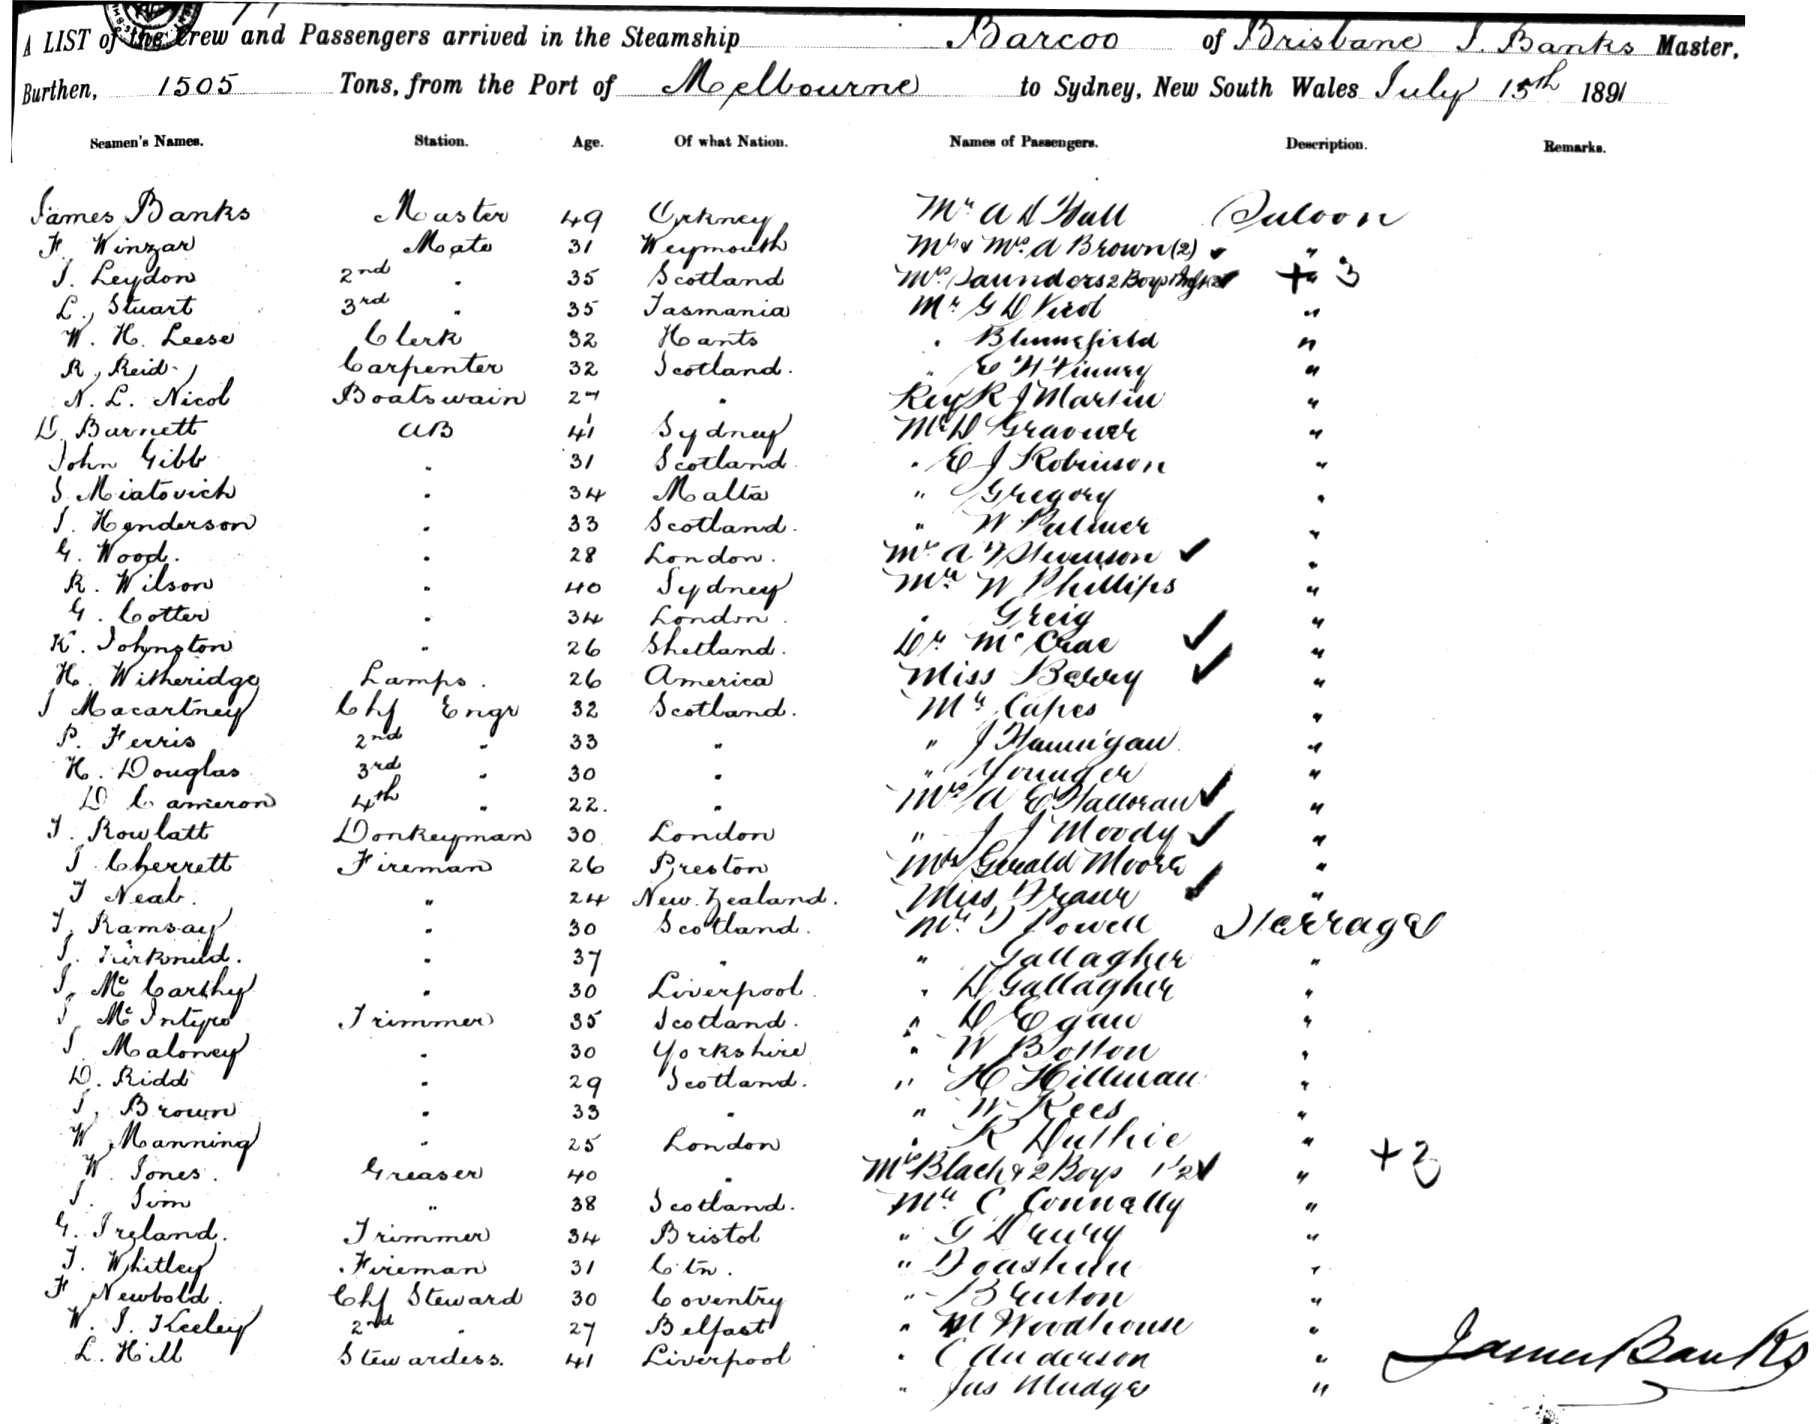 A LIST of the Crew and Passengers arrived in the Steamship Barcoo of Brisbane J. Banks Master,
Burthen, 1505 Tons, from the Port of Melbourne to Sydney, New South Wales July 15th 1891
Seamen's Names. Station. Age. Of what Nation. Names of Passengers. Description. Remarks.
James Banks Master 49 Orkney Mr A D Hall Saloon
F. Winzar Mate 31 Weymouth Mr & Mrs A Brown (2) "
J. Leydon 2nd " 35 Scotland Mrs Saunders 2 Boys + " 3
L. Stuart 3rd " 35 Tasmania Mr G D "
W. H. Leese Clerk 32 Hants " "
R. Reid Carpenter 32 Scotland. " E H Finney "
N. L. Nicol Boatswain 27 " Rev R J Martin "
D. Barnett AB 41 Sydney Mr D "
John Gibb " 31 Scotland " E J Robinson "
S. Miatovich " 34 Malta " Gregory "
J. Henderson " 33 Scotland. " W Palmer "
G. Wood. " 28 London. Mrs A Stevenson "
R. Wilson " 40 Sydney Mr W Phillips "
G. Cotter " 34 London. " Greig "
K. Johnston " 26 Shetland. Dr McCrae "
H. Witheridge Lamps. 26 America Miss Berry "
J Macartney Chf Engr 32 Scotland. Mr Capes "
P. Ferris 2nd " 33 " " J Hannigan "
H. Douglas 3rd " 30 " " Younger "
D Cameron 4th " 22. " Mrs A E Halloran "
T. Rowlatt Donkeyman 30 London " J J Moody "
J Cherrett Fireman 26 Preston Mr Gerald Moore "
T Neal. " 24 New Zealand. Miss Fraser "
T. Ramsay " 30 Scotland. Mr T Powell Steerage
J. " 37 " " Gallagher "
J. McCarthy " 30 Liverpool. " D Gallagher "
J McIntyre Trimmer 35 Scotland. " D Egan "
J Maloney " 30 Yorkshire " W Bolton "
D. Ridd " 29 Scotland. " H Hillman "
J. Brown " 33 " " W Rees "
W Manning " 25 London " R Duthie "
W. Jones. Greaser 40 " Mrs Black & 2 Boys " + 2
J. Sim " 38 Scotland. Mr C Connolly "
G. Ireland. Trimmer 34 Bristol " G Drury "
T. Whitley Fireman 31 Ctn. " "
F Newbold. Chf Steward 30 Coventry " Benton "
W. J. Keeley 2nd " 27 Belfast " M Woodhouse "
L. Hill Stewardess. 41 Liverpool " C Anderson " James Banks
" Jas Mudge "